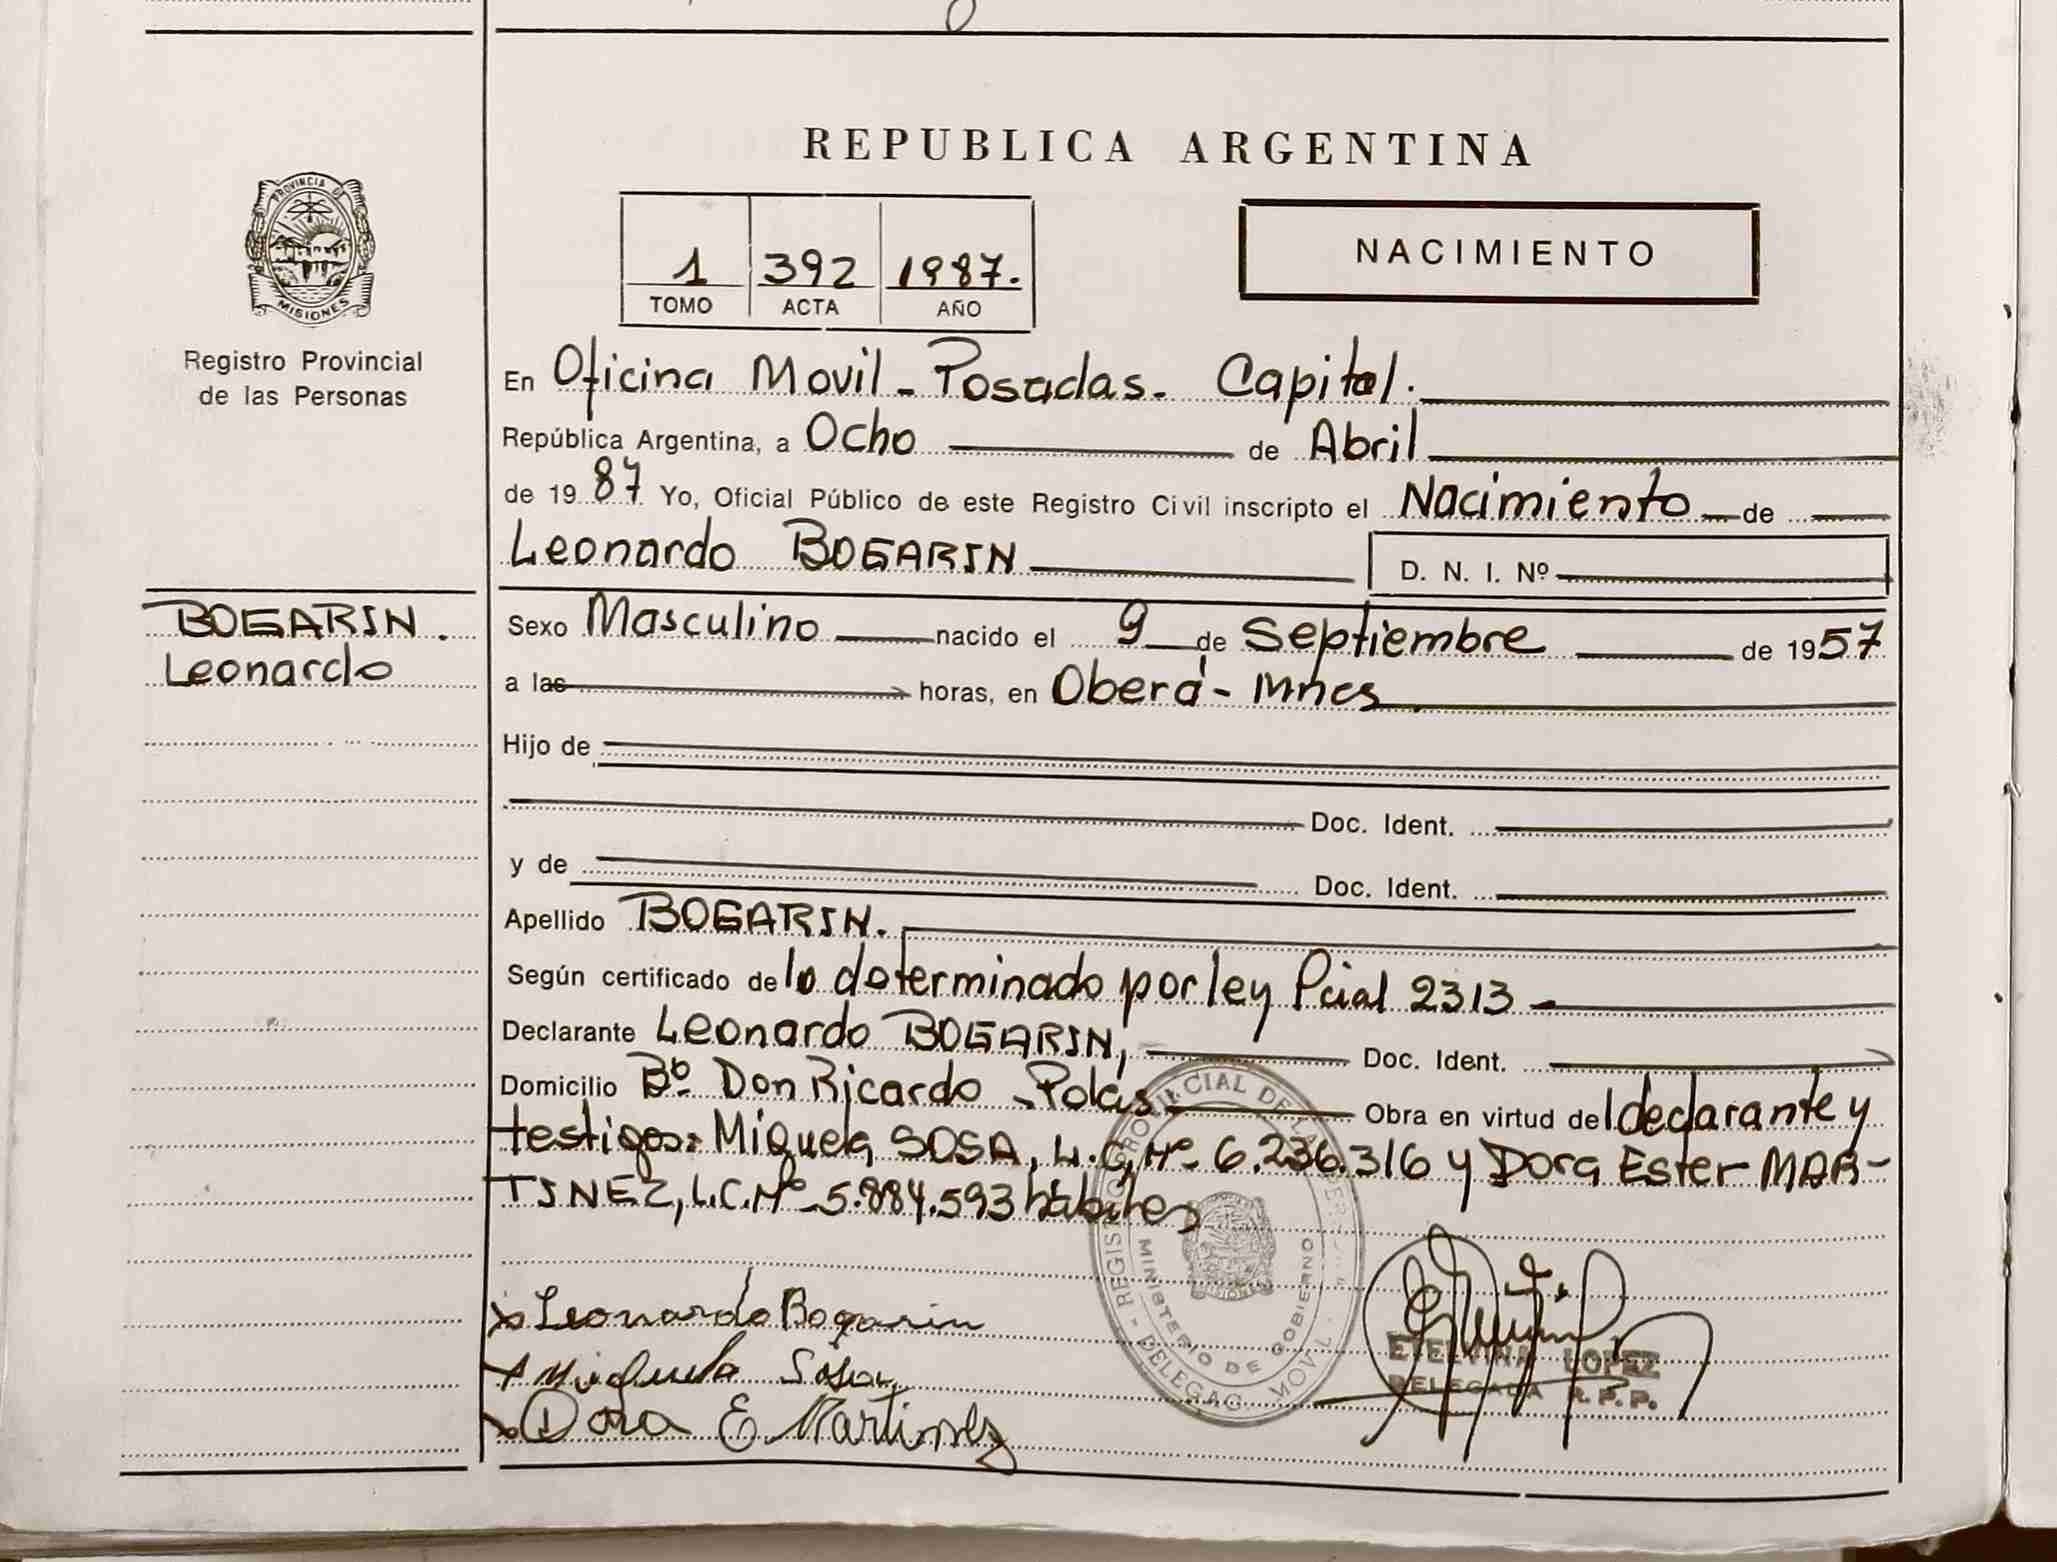 REPUBLICA ARGENTINA
PROVINCIA DE
MISIONES
Registro Provincial
de las Personas
1 392 1987.
TOMO ACTA AÑO
NACIMIENTO
En Oficina Movil - Posadas. Capital.
República Argentina, a Ocho de Abril
de 1987 Yo, Oficial Público de este Registro Civil inscripto el Nacimiento de
Leonardo BOGARIN D. N. I. Nº
BOGARIN.
Leonardo
Sexo Masculino nacido el 9 de Septiembre de 1957
a las horas, en Oberá - Mnes
Hijo de
Doc. Ident.
y de Doc. Ident.
Apellido BOGARIN.
Según certificado de lo determinado por ley Pcial 2313 -
Declarante Leonardo BOGARIN, Doc. Ident.
Domicilio Bº Don Ricardo - Pdas - Obra en virtud del declarante y
testigos: Miguela SOSA, L.C. Nº 6.236.316 y Dora Ester MAR-
TINEZ, L.C. Nº 5.884.593 habiles
REGISTRO PROVINCIAL DE LAS PERSONAS - DELEGAC. MOVIL -
MINISTERIO DE GOBIERNO
MISIONES
x Leonardo Bogarin
x Miguela Sosa
x Dora E Martinez
ETELVINA LOPEZ
DELEGADA R.P.P.